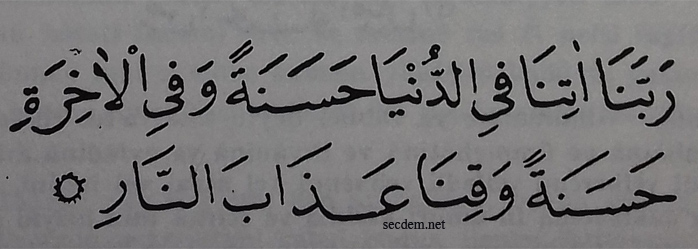 رَبَّنَا اٰتِنَا فِي الدُّنْيَا حَسَنَةً وَفِي الْاٰخِرَةِ
حَسَنَةً وَقِنَا عَذَابَ النَّارِ ۞
secdem.net